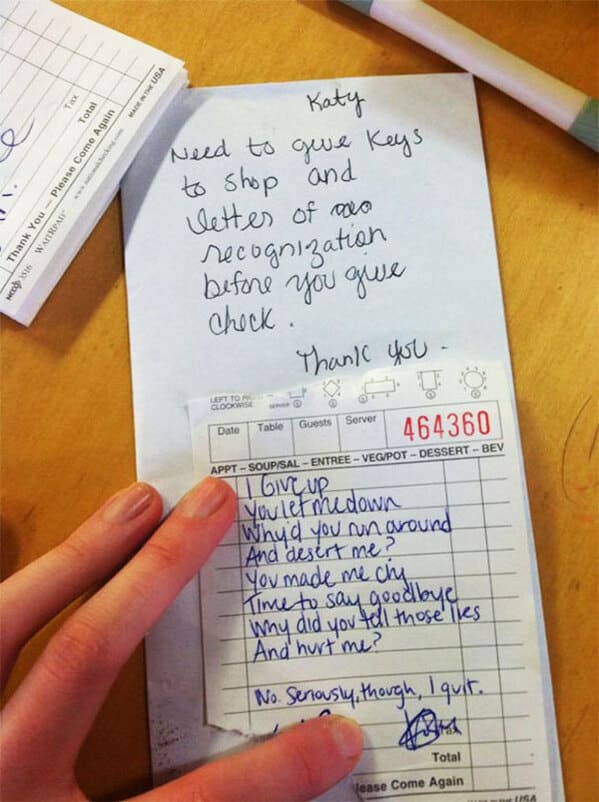 Tax
Total
Thank You — Please Come Again
NCCO 3516 WAITRPAD® www.nationalchecking.com MADE IN THE USA
Katy
Need to give Keys
to shop and
letter of
recognization
before you give
check.
Thank you -
LEFT TO
CLOCKWISE
Date Table Guests Server 464360
APPT – SOUP/SAL – ENTREE – VEG/POT – DESSERT – BEV
I Give up
You let me down
Why'd you run around
And desert me?
You made me cry
Time to say goodbye
Why did you tell those lies
And hurt me?
No. Seriously, though, I quit.
Tax
Total
lease Come Again
USA